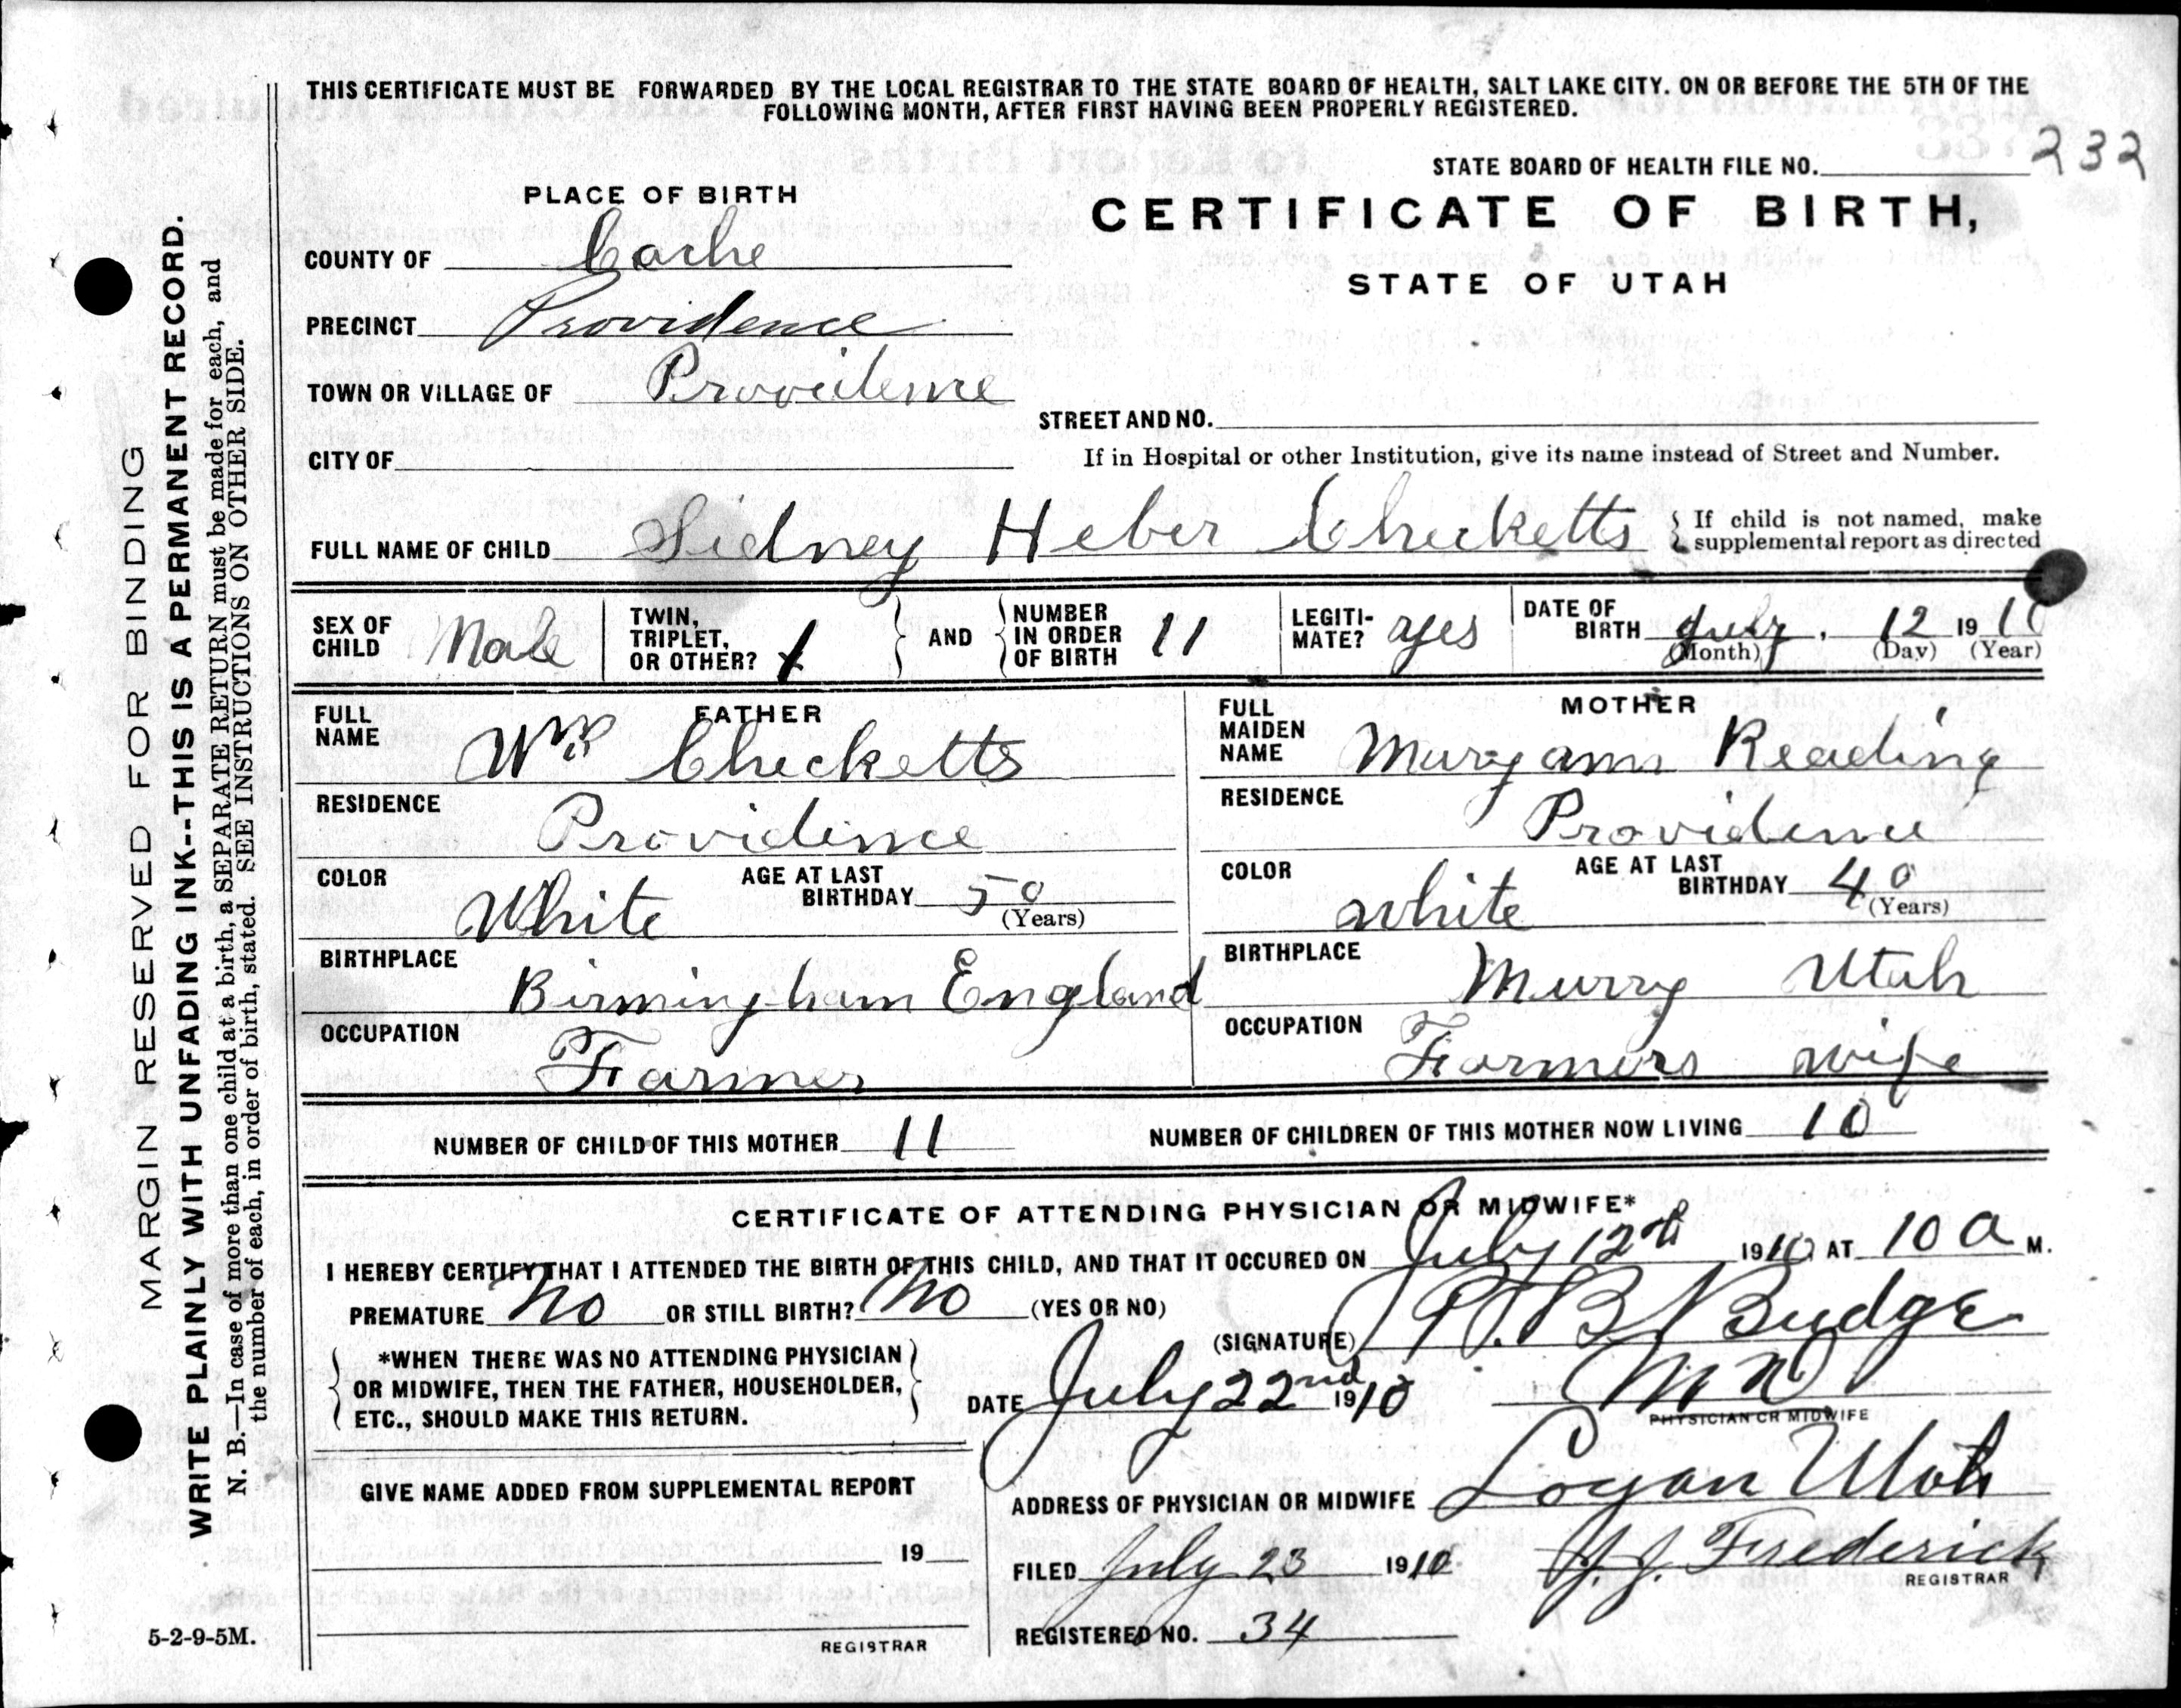 THIS CERTIFICATE MUST BE FORWARDED BY THE LOCAL REGISTRAR TO THE STATE BOARD OF HEALTH, SALT LAKE CITY. ON OR BEFORE THE 5TH OF THE
FOLLOWING MONTH, AFTER FIRST HAVING BEEN PROPERLY REGISTERED.
STATE BOARD OF HEALTH FILE NO. 232
PLACE OF BIRTH
CERTIFICATE OF BIRTH,
STATE OF UTAH
COUNTY OF Cache
PRECINCT Providence
TOWN OR VILLAGE OF Providence
STREET AND NO.
CITY OF
If in Hospital or other Institution, give its name instead of Street and Number.
FULL NAME OF CHILD Sidney Heber Checketts
If child is not named, make
supplemental report as directed
SEX OF CHILD Male
TWIN, TRIPLET, OR OTHER? 1
AND
NUMBER IN ORDER OF BIRTH 11
LEGITI-MATE? yes
DATE OF BIRTH July 12 1910
(Month) (Day) (Year)
FATHER
FULL NAME Wm Checketts
RESIDENCE Providence
COLOR White
AGE AT LAST BIRTHDAY 50
(Years)
BIRTHPLACE Birmingham England
OCCUPATION Farmer
MOTHER
FULL MAIDEN NAME Maryann Reading
RESIDENCE Providence
COLOR white
AGE AT LAST BIRTHDAY 40
(Years)
BIRTHPLACE Murry Utah
OCCUPATION Farmers wife
NUMBER OF CHILD OF THIS MOTHER 11
NUMBER OF CHILDREN OF THIS MOTHER NOW LIVING 10
CERTIFICATE OF ATTENDING PHYSICIAN OR MIDWIFE*
I HEREBY CERTIFY THAT I ATTENDED THE BIRTH OF THIS CHILD, AND THAT IT OCCURED ON July 12th 1910 AT 10 a M.
PREMATURE No OR STILL BIRTH? No (YES OR NO)
(SIGNATURE) B Budge
*WHEN THERE WAS NO ATTENDING PHYSICIAN
OR MIDWIFE, THEN THE FATHER, HOUSEHOLDER,
ETC., SHOULD MAKE THIS RETURN.
DATE July 22nd 1910
M D
PHYSICIAN OR MIDWIFE
GIVE NAME ADDED FROM SUPPLEMENTAL REPORT
ADDRESS OF PHYSICIAN OR MIDWIFE Logan Utah
19
FILED July 23 1910
J. J. Frederick
REGISTRAR
REGISTERED NO. 34
REGISTRAR
5-2-9-5M.
MARGIN RESERVED FOR BINDING
WRITE PLAINLY WITH UNFADING INK--THIS IS A PERMANENT RECORD.
N. B.—In case of more than one child at a birth, a SEPARATE RETURN must be made for each, and
the number of each, in order of birth, stated. SEE INSTRUCTIONS ON OTHER SIDE.